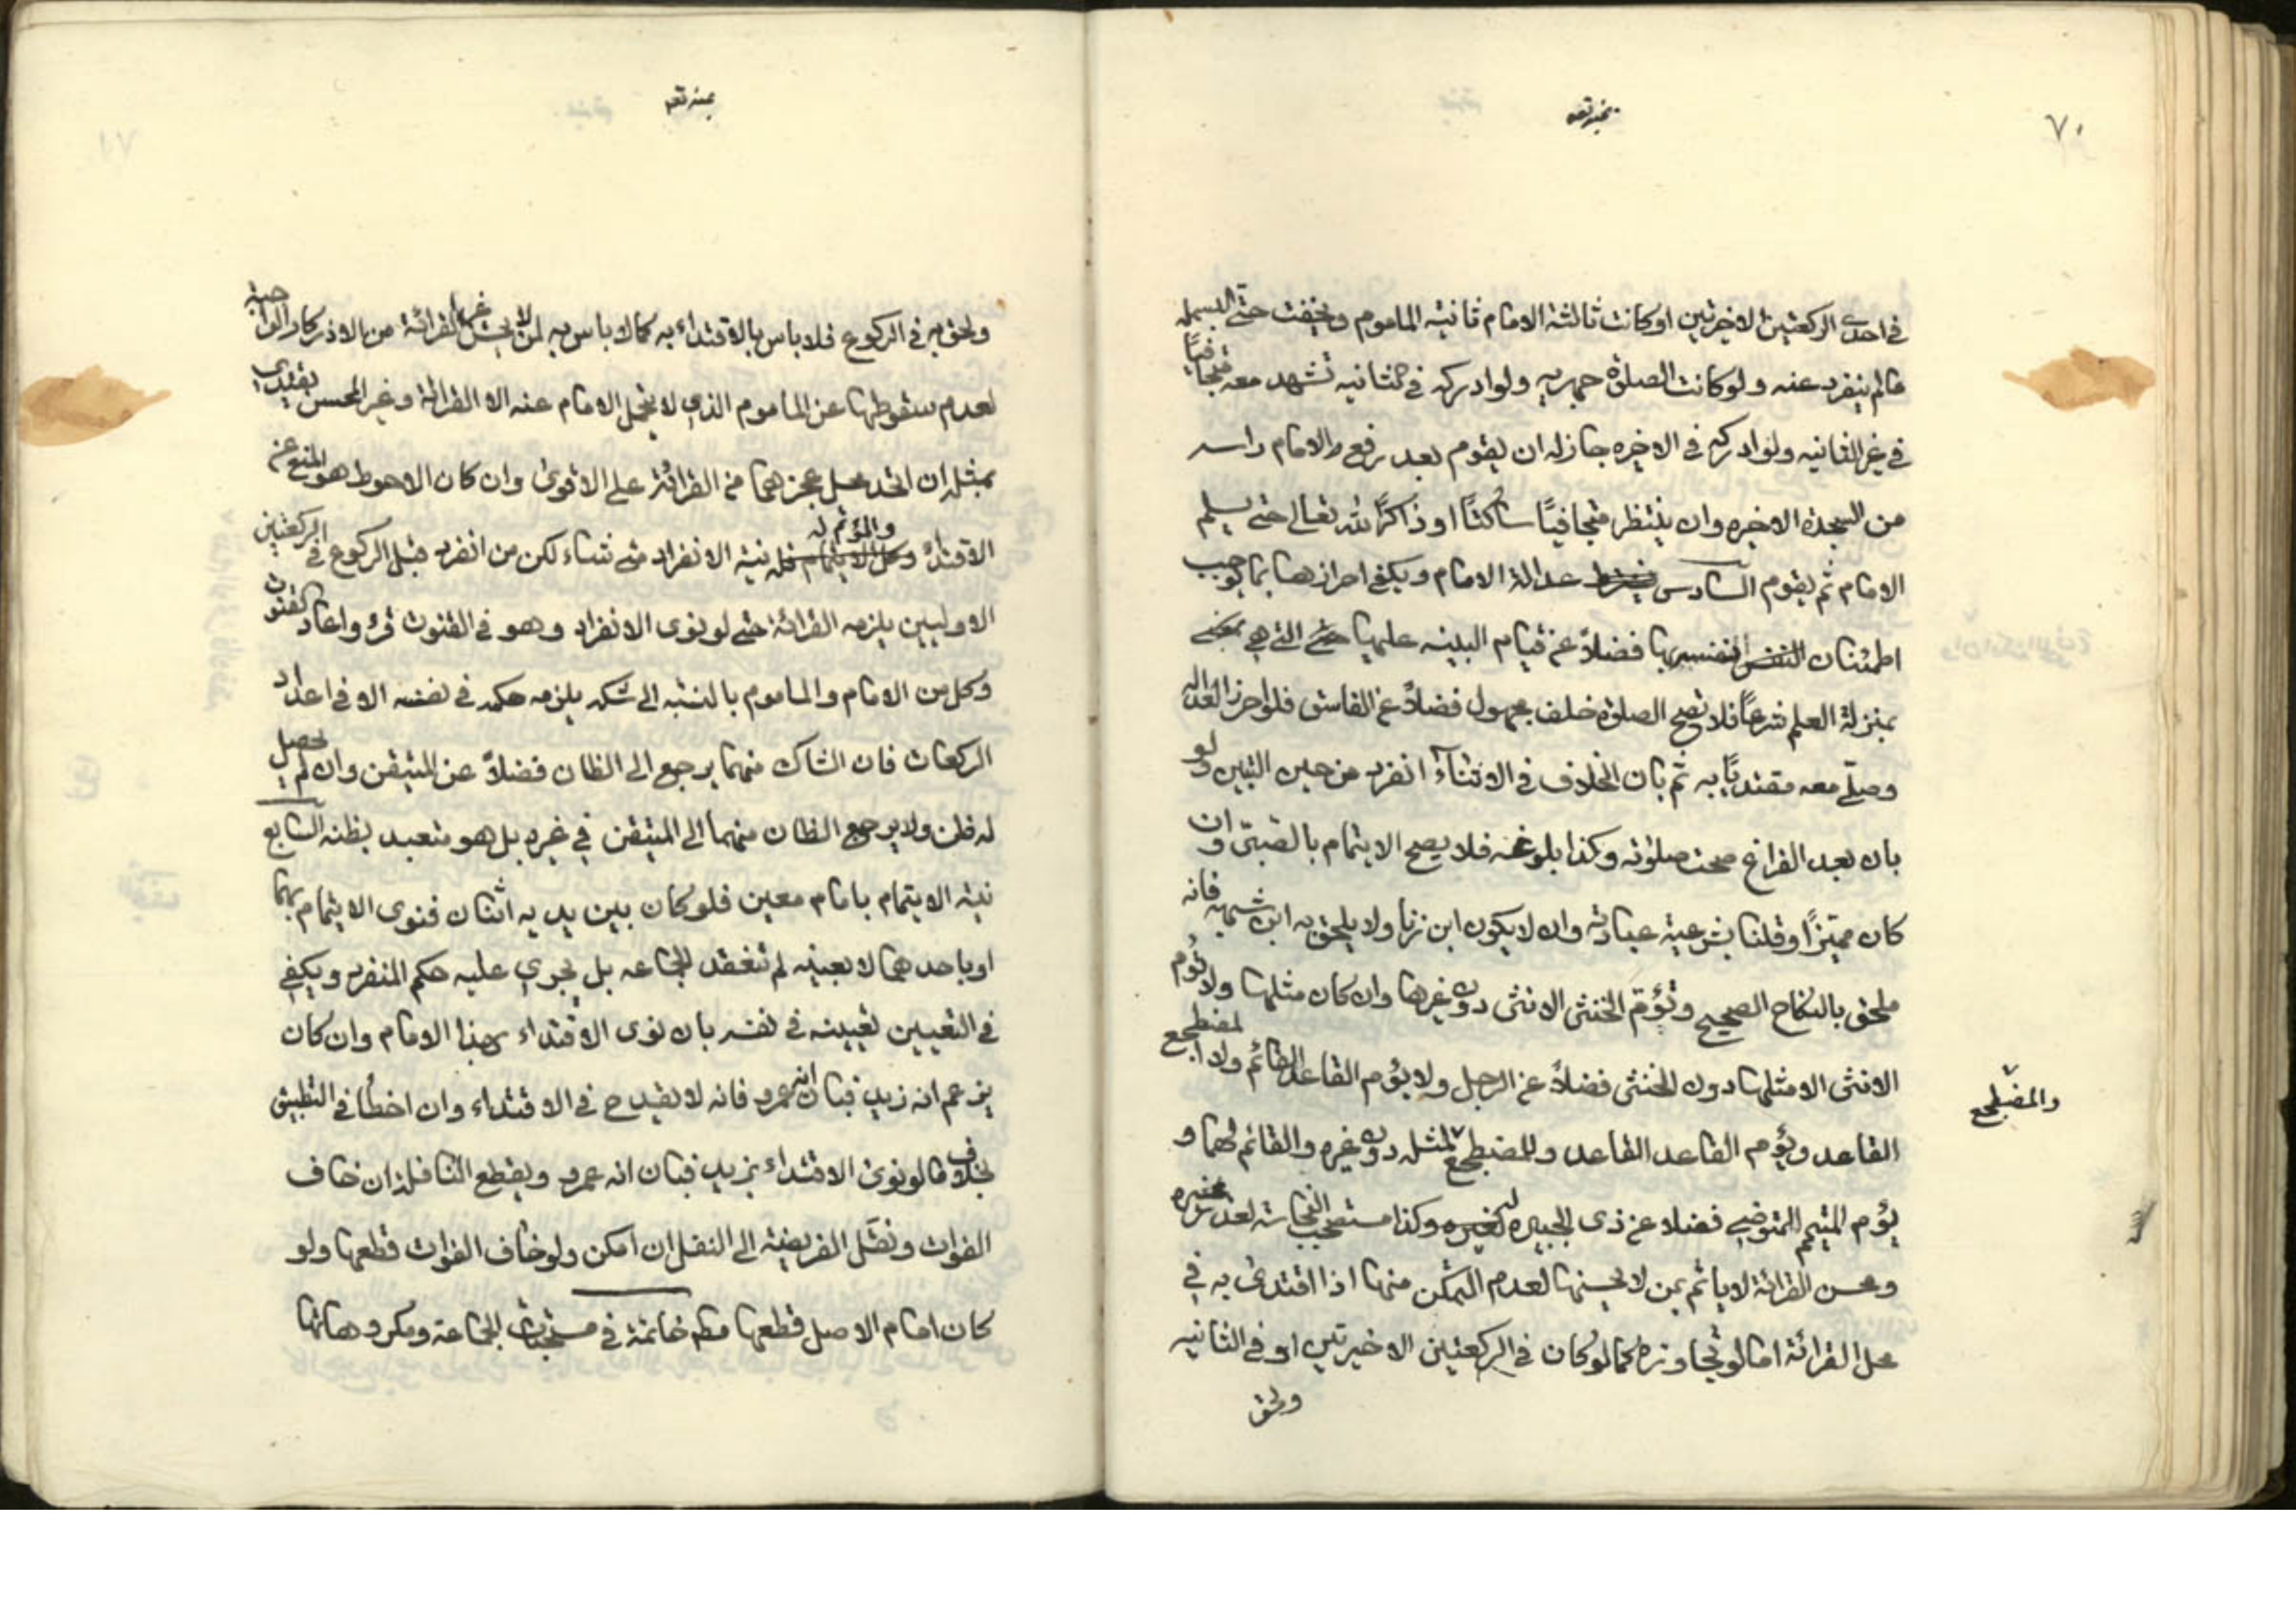 ٧٠
في احدى الركعتين الاخرتين او كانت ثالثة الامام ثانيه الماموم ويخفت حتى البسمله
مالم ينفرد عنه ولو كانت الصلوة جهريه ولو ادركه في الثانيه تشهد معه متجافيًا
في غير الثانيه ولو ادركه في الاخيره جاز له ان يقوم بعد رفع الامام راسه
من السجدة الاخيره وان ينتظر متجافيًا ساكتًا او ذاكرًا لله تعالى حتى يسلم
الامام ثم يقوم السادس يشترط عدالة الامام ويكفي احرازها بما يوجب
اطمئنان النفس بها فضلًا عن قيام البينه عليها التي هي
بمنزلة العلم شرعًا فلا تصح الصلوة خلف مجهول فضلًا عن الفاسق فلو احرز العداله
وصلّى معه مقتديًا به ثم بان الخلاف في الاثناء انفرد من حين التبين ولو
بان بعد الفراغ صحت صلوته وكذا بلوغه فلا يصح الايتمام بالصبيّ وان
كان مميّزًا وقلنا بشرعية عبادته وان لا يكون ابن زنا ولا يلحق به ابن شبهه فانه
ملحق بالنكاح الصحيح وتؤمّ الخنثى الانثى دون غيرها وان كان مثلها ولا تؤم
الانثى الا مثلها دون الخنثى فضلًا عن الرجل ولا يؤم القاعد القائم ولا المضطجع
القاعد ويؤم القاعد القاعد والمضطجع لمثله دون غيره والقائم لهما و
والمضطجع
يؤم المتيمم المتوضي فضلا عن ذى الجبيره لغيره وكذا مستصحب النجاسة لعذر غيره
ومحسن القرائة لا ياتم بمن لا يحسنها لعدم التمكن منها اذا اقتدى به في
محل القرائة اما لو تجاوزه كما لو كان في الركعتين الاخيرتين او في الثانيه
ولحق
ولحق به في الركوع فلا باس بالاقتداء به كما لا باس به لمن لا يحسن غير القرائة من الاذكار الواجبة
لعدم سقوطها عن الماموم الذي لا يتحمل الامام عنه الا القرائة وغير المحسن يقتدي
بمثله ان اتحد محل عجزهما من القرائة على الاقوى وان كان الاحوط هو المنع عن
الاقتداء وللمؤتم نية الانفراد متى شاء لكن من انفرد قبل الركوع في الركعتين
الاوليين يلزمه القرائة حتى لو نوى الانفراد وهو في القنوت قرء واعاد القنوت
وكل من الامام والماموم بالنسبه الى شكه يلزمه حكمه في نفسه الا في اعداد
الركعات فان الشاك منهما يرجع الى الظان فضلًا عن المتيقن وان لم يحصل
له ظن ولا يرجع الظان منهما الى المتيقن في غيره بل هو متعبد بظنه السابع
نية الايتمام بامام معين فلو كان بين يديه اثنان فنوى الايتمام بهما
او باحدهما لا بعينه لم تنعقد الجماعه بل يجري عليه حكم المنفرد ويكفي
في التعيين تعيينه في نفسه بان نوى الاقتداء بهذا الامام وان كان
يزعم انه زيد فبان انه عمرو فانه لا يقدح في الاقتداء وان اخطأ في التطبيق
بخلاف ما لو نوى الاقتداء بزيد فبان انه عمرو ويقطع النافلة ان خاف
الفوات ونقل الفريضة الى النفل ان امكن ولو خاف الفوات قطعها ولو
كان امام الاصل قطعها مطم خاتمة في مستحبات الجماعة ومكروهاتها